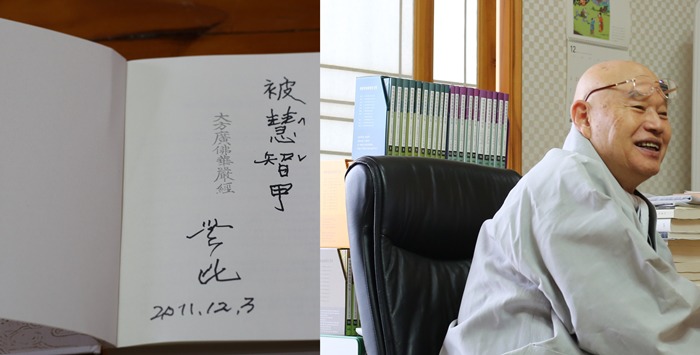 被慧智甲
大方廣佛華嚴經
無比
2011.12.3
12